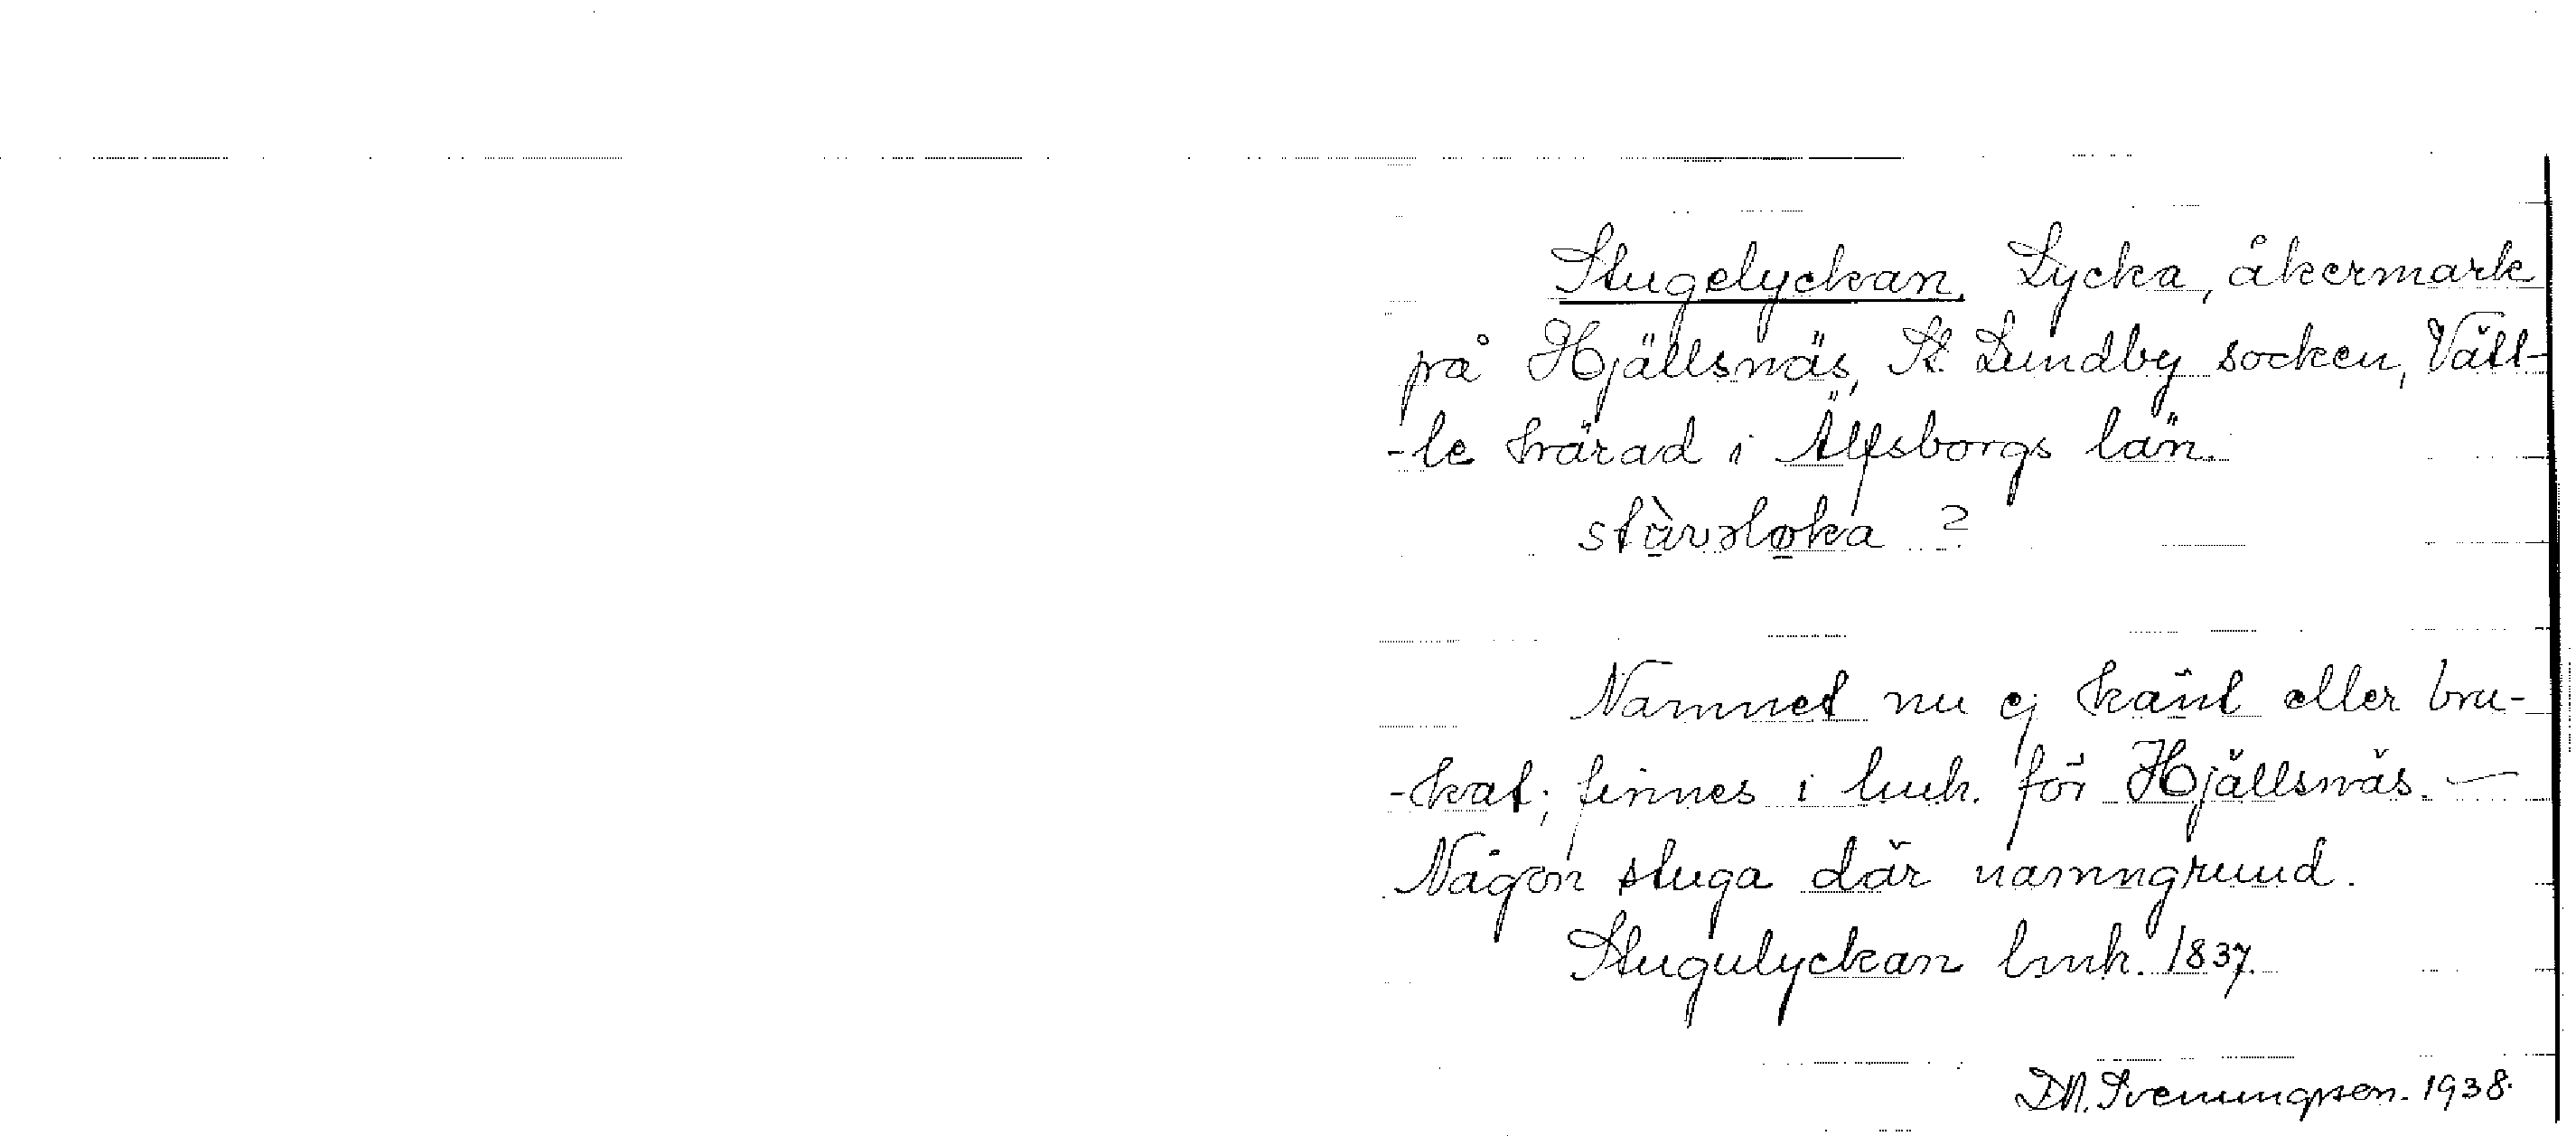 Stugelyckan. Lycka, åkermark
på Hjällsnäs, St. Lundby socken, Vätt-
-le härad i Älfsborgs län.
stùvəløka ?
Namnet nu ej känt eller bru-
-kat; finnes i lmh. för Hjällsnäs. —
Någon stuga där namngrund.
Stugulyckan lmh. 1837.
D.A. Svenungsson. 1938.